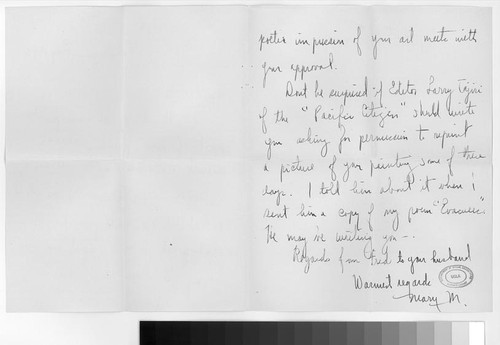 poetic impression of your art meets with
your approval.
Don't be surprised if Editor Larry Tajiri
of the "Pacific Citizen" should write
you asking for permission to reprint
a picture of your painting some of these
days. I told him about it when I
sent him a copy of my poem "Evacuee."
He may be writing you –.
Regards from Fred to your husband
Warmest regards
Mary M.